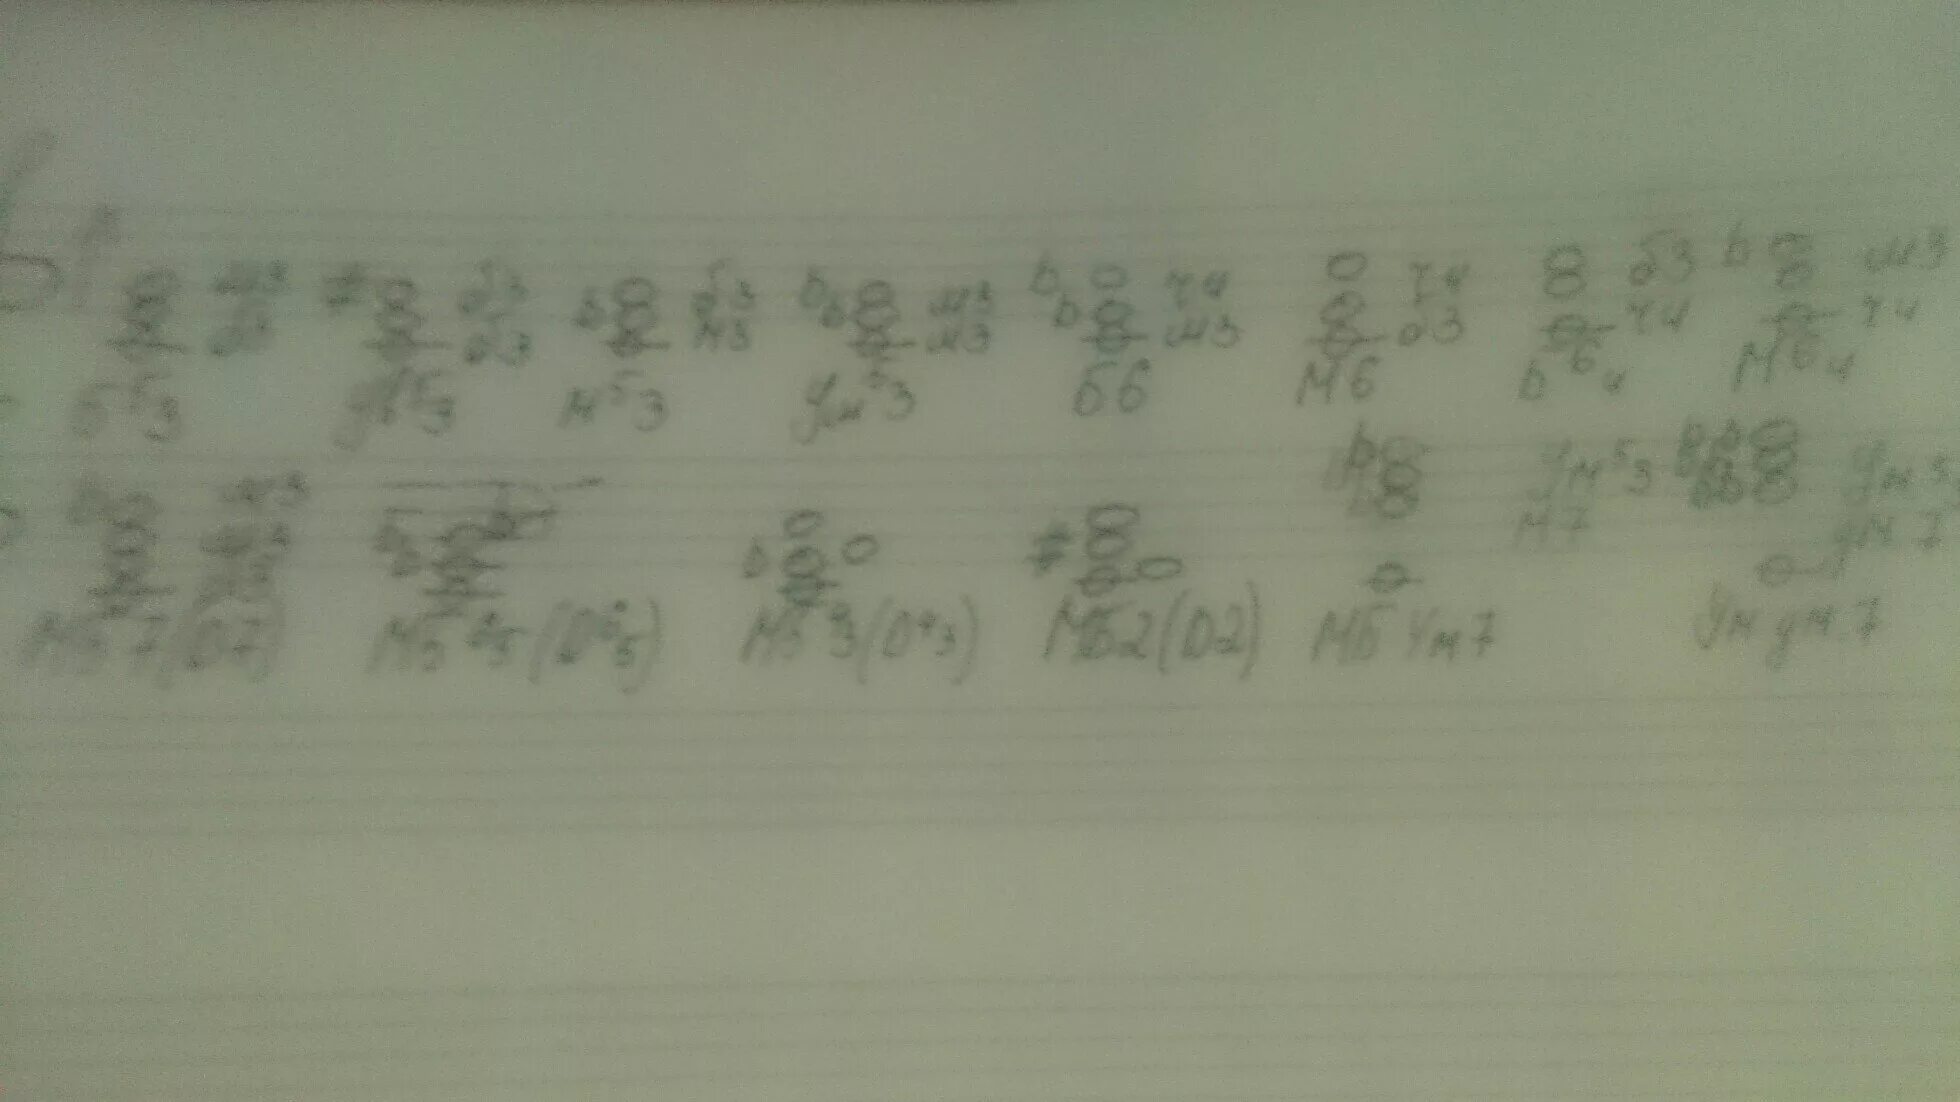 м3 б3 б3 м3 ч4 ч4 б3 м3
б3 б3 м3 м3 м3 б3 ч4 ч4
Б53 ув53 м53 Ум53 Б6 М6 Б64 М64
м3 Ум53 Ум53
м7 ум7
МБ7(D7) МБ65(D65) МБ43(D43) МБ2(D2) МБ Ум7 Ум ум.7